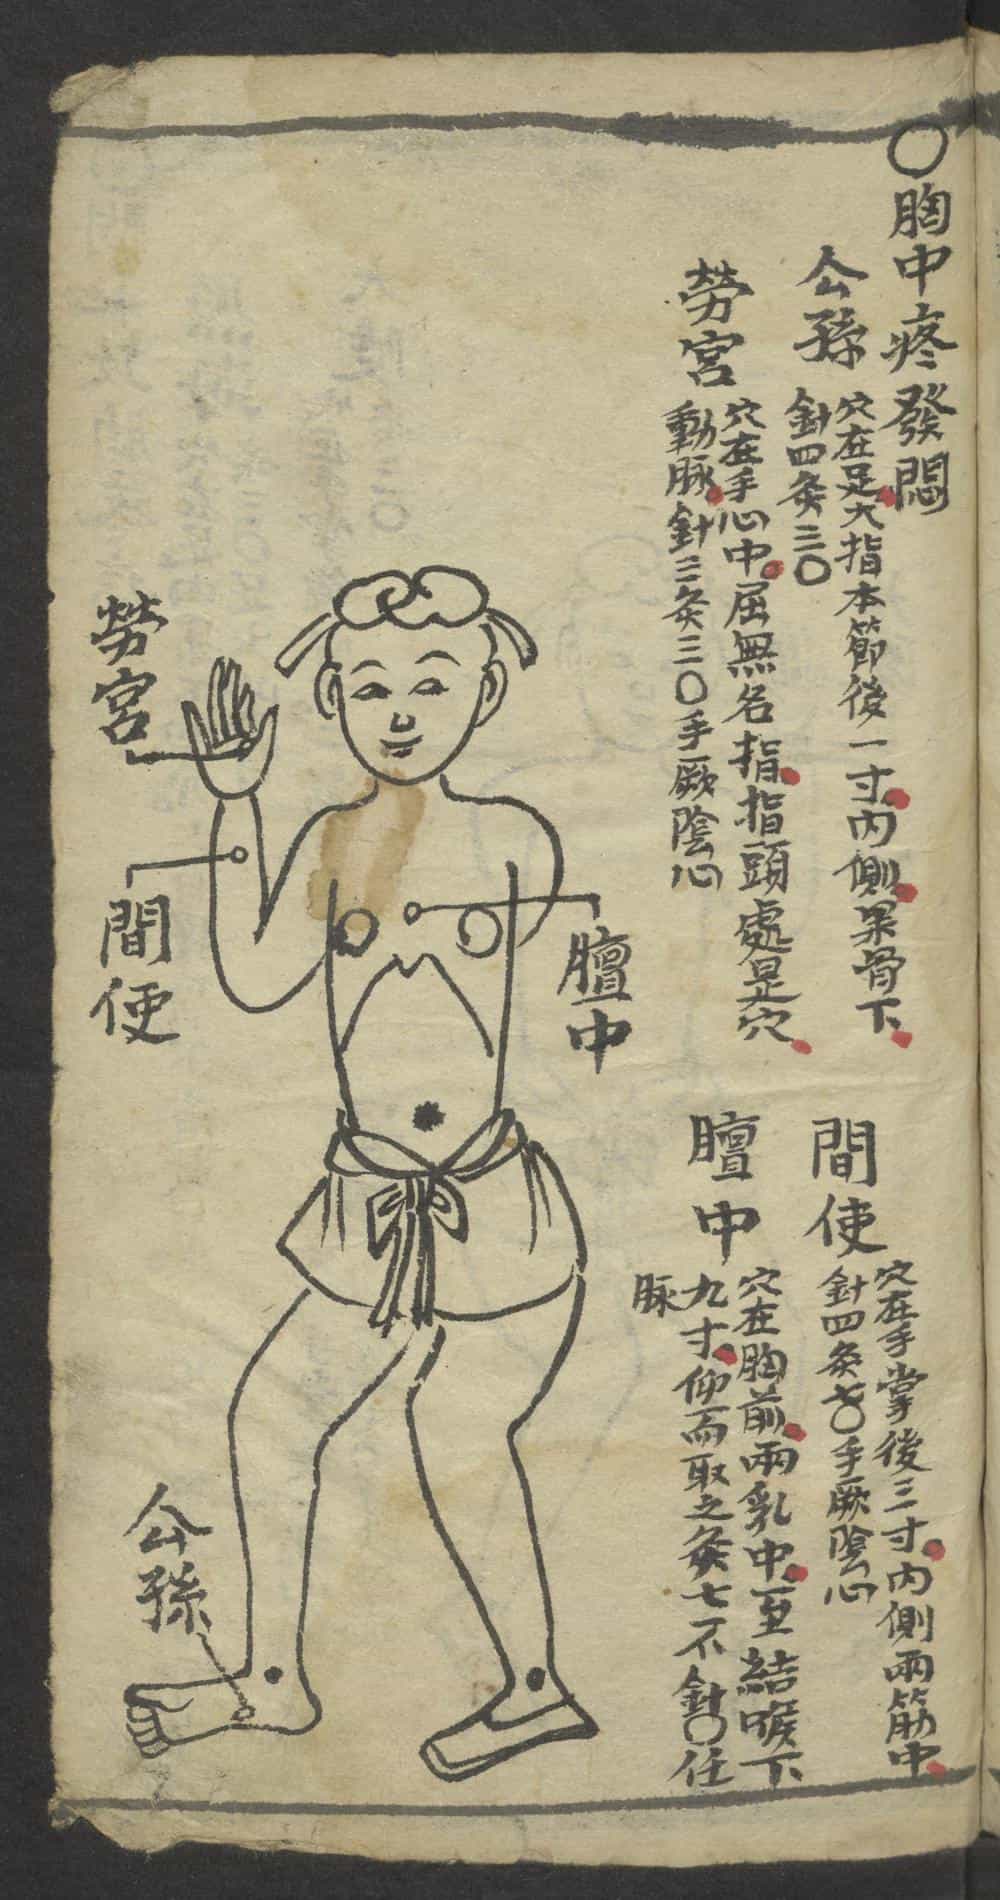 〇胸中疼發悶
公孫
穴在足大指本節後一寸內側果骨下
針四灸三〇
勞宮
穴在手心中屈無名指指頭處是穴
動脉針三灸三〇手厥陰心
間使
穴在手掌後三寸內側兩筋中
針四灸七〇手厥陰心
膻中
穴在胸前兩乳中至結喉下
九寸仰而取之灸七不針〇任
脉
勞宮
間使
膻中
公孫